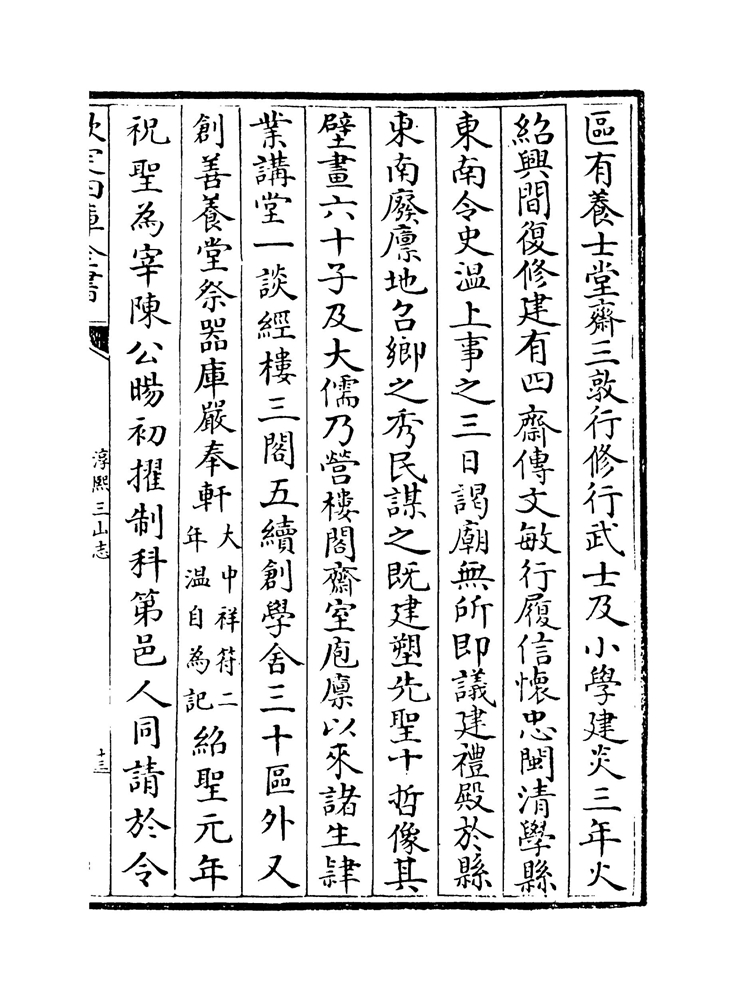 區有養士堂齋三敦行修行武士及小學建炎三年火
紹興間復修建有四齋傳文敏行履信懷忠閩清學縣
東南令史溫上事之三日謁廟無所即議建禮殿於縣
東南廢廪地召鄉之秀民謀之既建塑先聖十哲像其
壁畫六十子及大儒乃營樓閣齋室庖廪以來諸生肄
業講堂一談經樓三閣五續創學舍三十區外又
創善養堂祭器庫嚴奉軒大中祥符二年溫自為記紹聖元年
祝聖為宰陳公暘初擢制科第邑人同請於令
欽定四庫全書
淳熙三山志
十三